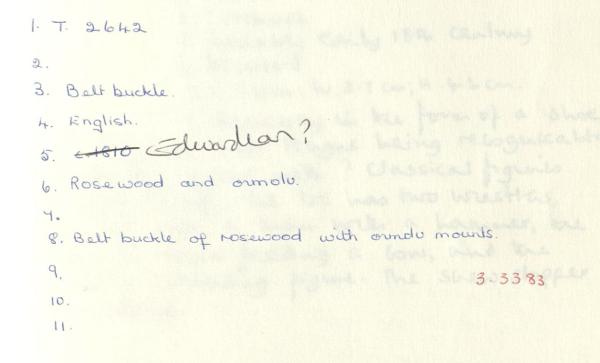 1. T. 2642
2.
3. Belt buckle.
4. English.
5. c.1810 Edwardian?
6. Rosewood and ormolu.
7.
8. Belt buckle of rosewood with ormolu mounts.
9.
3.3383
10.
11.